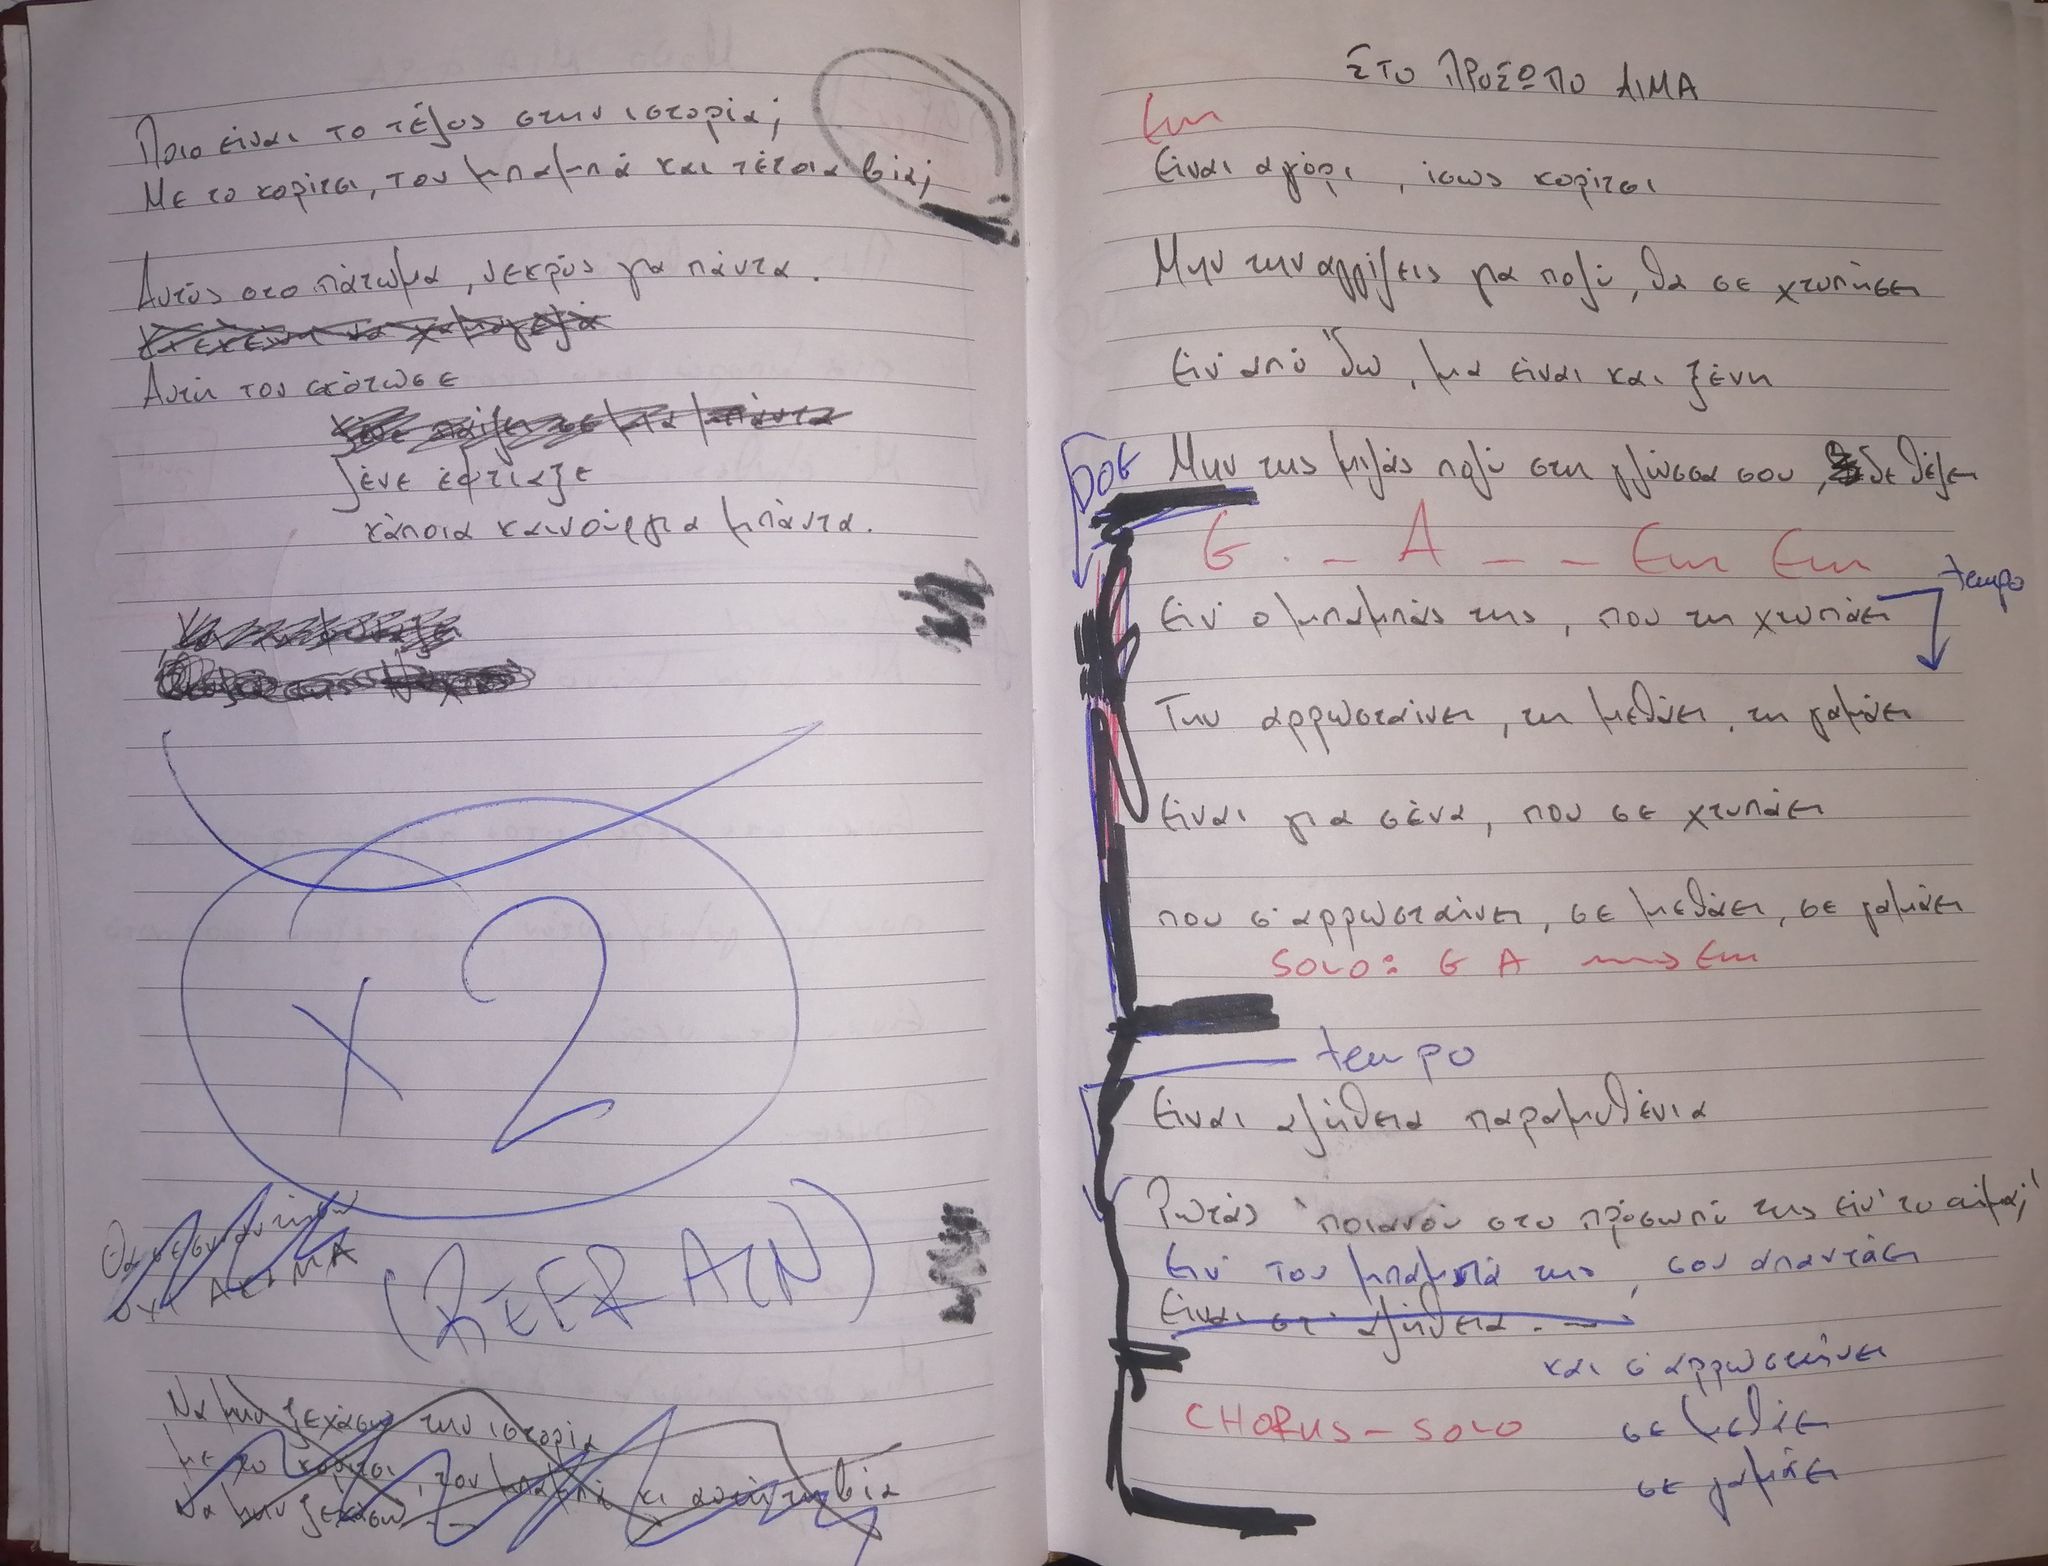 Ποιο είναι το τέλος στην ιστορία;
Με το κορίτσι, τον μπαμπά και τέτοια βία;
Αυτός στο πάτωμα, νεκρός για πάντα.
Αυτή τον σκότωσε
λένε έφτιαξε
κάποια καινούργια μπάντα.
x2
(REFRAIN)
Να μην ξεχάσω την ιστορία
με το κορίτσι, τον μπαμπά κι αυτή τη βία
να μην ξεχάσω
ΣΤΟ ΠΡΟΣΩΠΟ ΑΙΜΑ
Em
Είναι αγόρι, ίσως κορίτσι
Μην την αγγίξεις για πολύ, θα σε χτυπήσει
Ειν' από 'δω, μα είναι και ξένη
Μην της μιλάς πολύ στη γλώσσα σου, δε θέλει
G . _ A _ _ Em Em
tempo
Ειν' ο μπαμπάς της, που τη χτυπάει
Την αρρωσταίνει, τη μεθάει, τη γαμάει
Είναι για σένα, που σε χτυπάει
που σ' αρρωσταίνει, σε μεθάει, σε γαμάει
SOLO: G A Em
tempo
Είναι αλήθεια παραμυθένια
Ρωτάς 'ποιανού στο πρόσωπό της ειν' το αίμα;'
Ειν' του μπαμπά της, σου απαντάει
Είναι στ' αλήθεια...
και σ' αρρωσταίνει
CHORUS - SOLO σε μεθάει
σε γαμάει